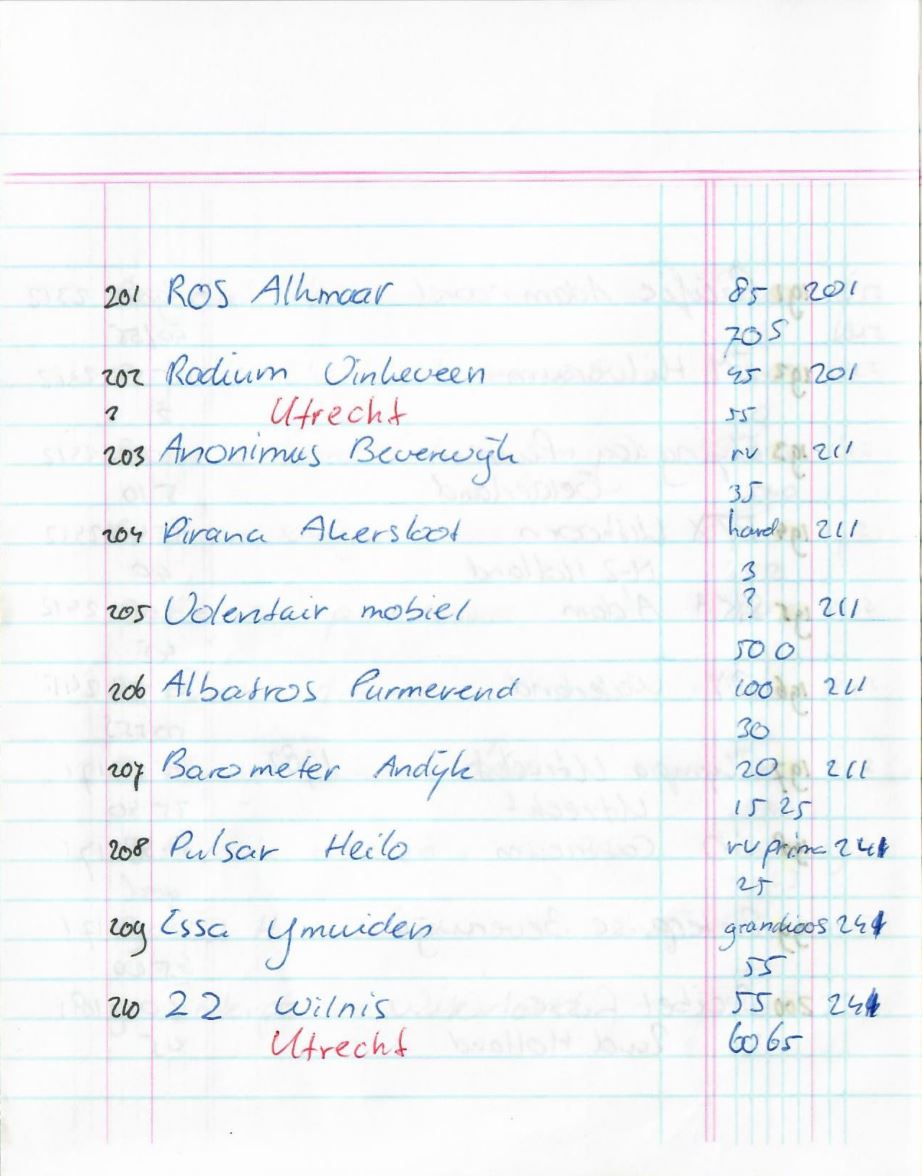 201 ROS Alkmaar 85 201
705
202 Radium Vinkeveen 45 201
? Utrecht 55
203 Anonimus Beverwijk rv 211
35
204 Pirana Akersloot hard 211
3
205 Volentair mobiel ? 211
50 0
206 Albatros Purmerend 100 211
30
207 Barometer Andijk 20 211
15 25
208 Pulsar Heilo rv prima 241
25
209 Essa Ymuiden grandioos 241
55
210 22 Wilnis 55 241
Utrecht 60 65